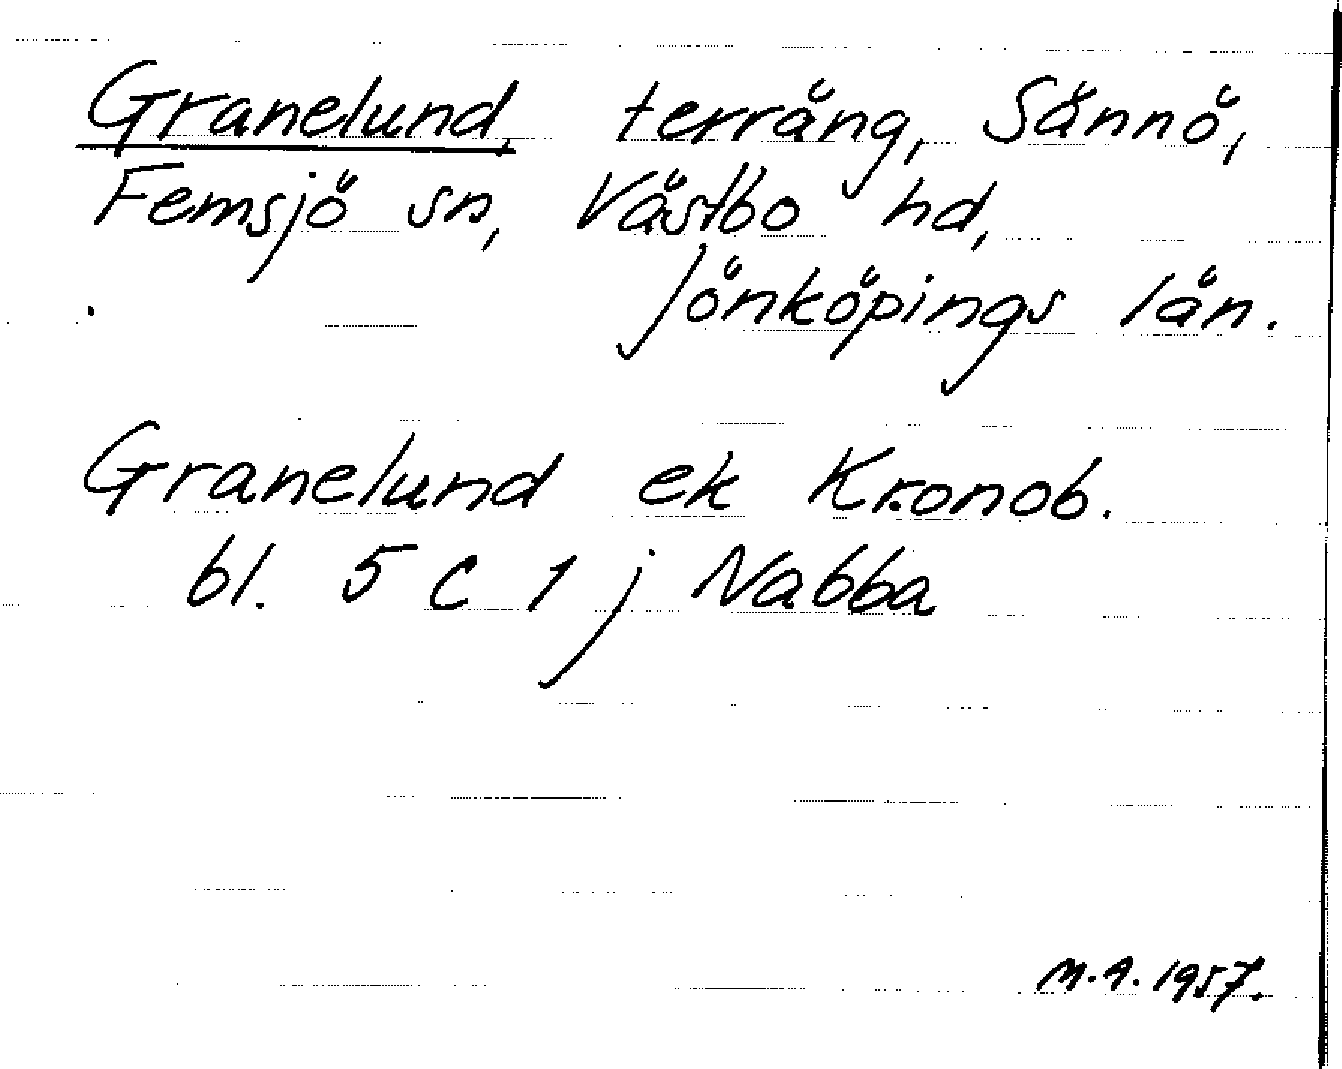 Granelund, terräng, Sännö,
Femsjö sn, Västbo hd,
Jönköpings län.
Granelund ek Kronob.
bl. 5 C 1 j Nabba
M.A. 1957.